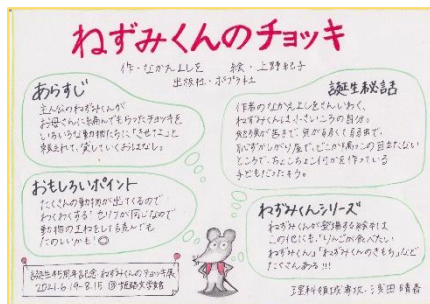 ねずみくんのチョッキ
作・なかえよしを　絵・上野紀子
出版社・ポプラ社
あらすじ
主人公のねずみくんが
お母さんに編んでもらったチョッキを
いろいろな動物たちに「きせてよ」と
頼まれて、貸していくおはなし。
おもしろいポイント
たくさんの動物が出てくるので
わくわくする! セリフが同じなので
動物のまねをしても読んでも
たのしいかも!
誕生秘話
作者のなかえよしをさんいわく、
ねずみくんは小さいころの自分。
勉強が苦手で、気が弱くて弱虫で、
恥ずかしがり屋で、どこか隅っこの目立たない
ところで、ちょこちょこ何かを作っている
子どもだったそう。
ねずみくんシリーズ
ねずみくんが登場する絵本は
この他にも、「りんごが食べたい
ねずみくん」「ねずみくんのきもち」など
たくさんある!!!
誕生45周年記念 ねずみくんのチョッキ展
2021.6.19-8.15 @姫路文学館
理科領域専攻・濱田晴春